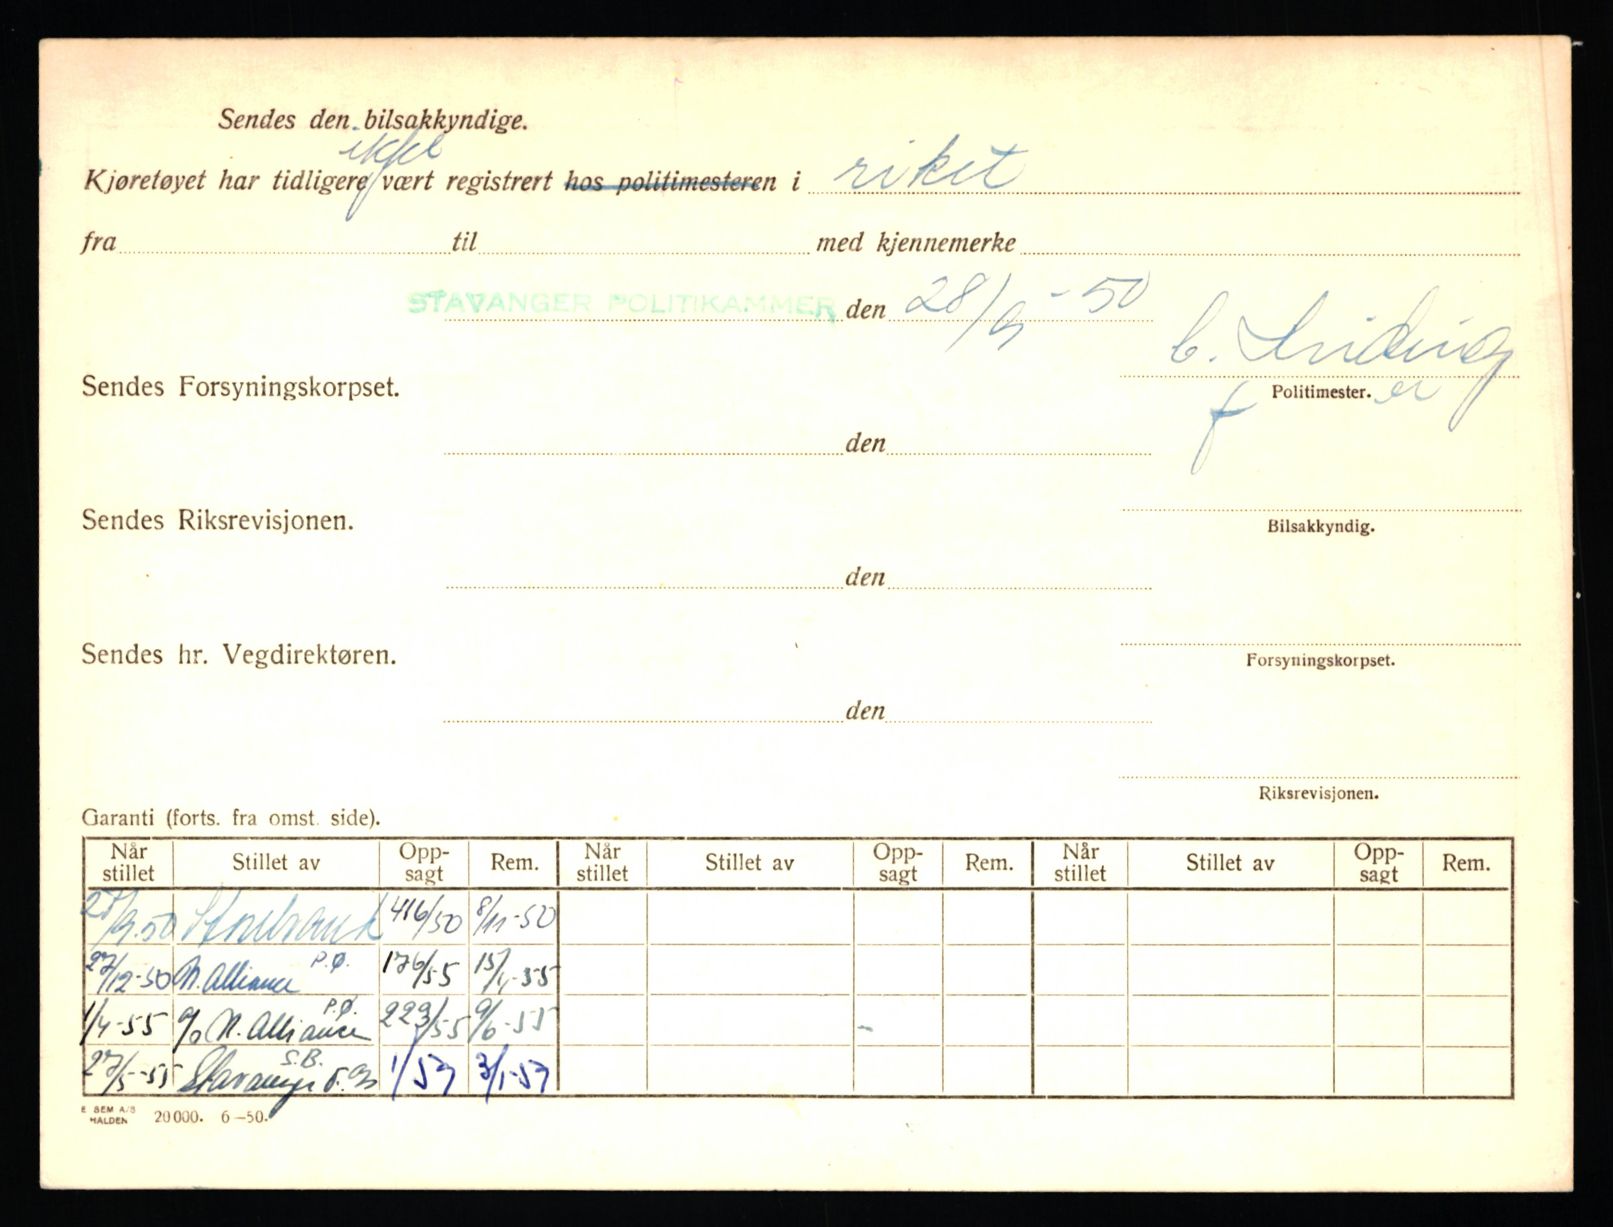 Sendes den bilsakkyndige.
ikke
Kjøretøyet har tidligere vært registrert hos politimesteren i riket
fra til med kjennemerke
STAVANGER POLITIKAMMER den 28/9-50
Sendes Forsyningskorpset.
Politimester.
f
den
Sendes Riksrevisjonen.
Bilsakkyndig.
den
Sendes hr. Vegdirektøren.
Forsyningskorpset.
den
Riksrevisjonen.
Garanti (forts. fra omst. side).
Når stillet Stillet av Opp-sagt Rem. Når stillet Stillet av Opp-sagt Rem. Når stillet Stillet av Opp-sagt Rem.
28/9-50 Storebrand 416/50 8/11-50
27/12-50 N. Alliance P.Ø. 176/55 15/4-55
1/4-55 N. Alliance P.Ø. 223/55 9/6-55
27/5-55 Stavanger S.B.
E SEM A/S
HALDEN 20000. 6-50.